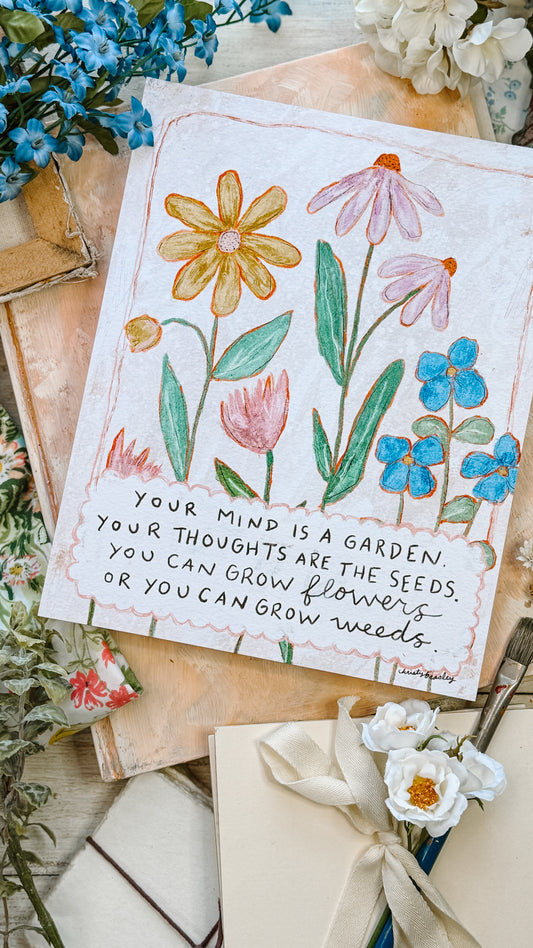 YOUR MIND IS A GARDEN.
YOUR THOUGHTS ARE THE SEEDS.
YOU CAN GROW flowers
OR YOU CAN GROW weeds.
kristybeasley